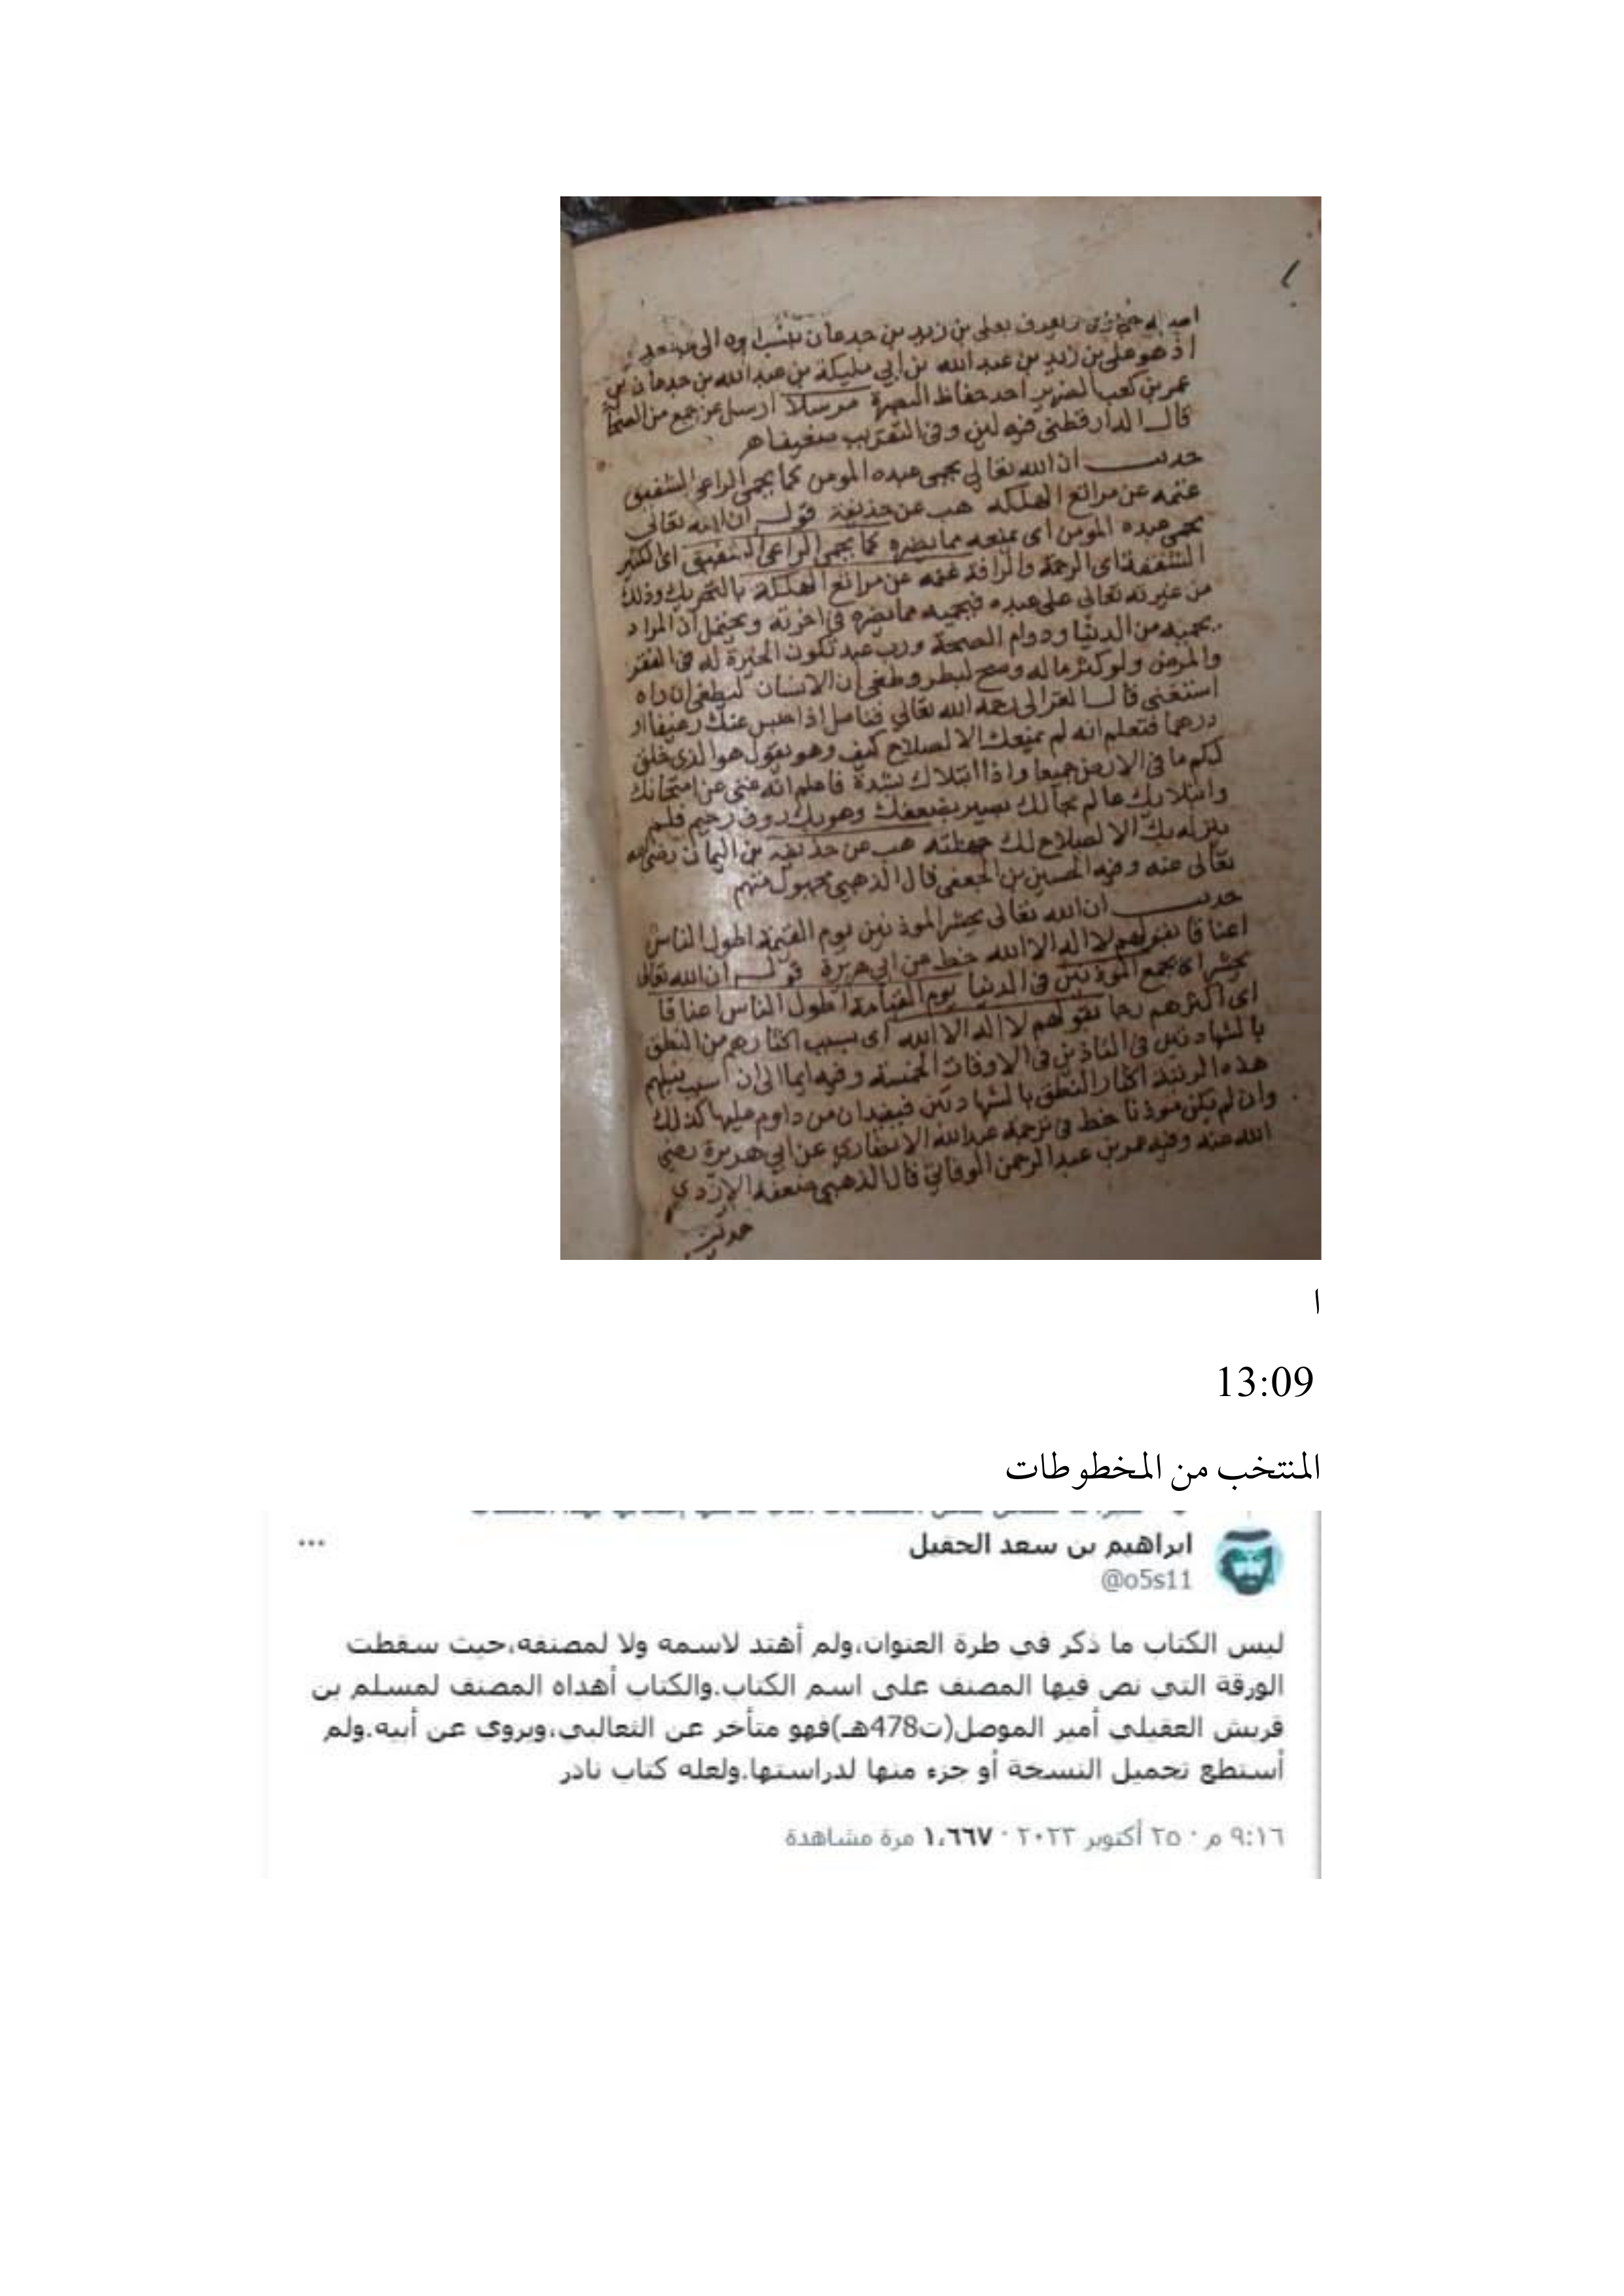 اذ هو على بن زيد بن عبد الله بن ابي مليكة بن عبد الله بن جدعان بن
احد حفاظ البصرة مرسلا ارسل عن جمع من
قال الدارقطنى فيه لين وفى التقريب ضعيف اهـ
حديث ان الله تعالى يحمى عبده المومن كما يحمى الراعى الشفيق
غنمه عن مراتع الهلكه هب عن حذيفة قوله ان الله تعالى
يحمى عبده المومن اى يمنعه مما يضره كما يحمى الراعى الشفيق اى الكثير
الشفقة اى الرحمة والرافة غنمه عن مراتع الهلكة بالتحريك وذلك
من غيرته تعالى على عبده فيحميه مما يضره فى اخرته ويحتمل ان المراد
يحميه من الدنيا ودوام الصحة ورب عبد تكون الخيرة له فى الفقر
والمرض ولو كثر ماله وصح لبطر وطغى ان الانسان ليطغى ان راه
استغنى قال الغزالى رحمه الله تعالى فتامل اذا حبس عنك رغيفا او
درهما فتعلم انه لم يمنعك الا لصلاح كيف وهو يقول هو الذى خلق
لكم ما فى الارض جميعا واذا ابتلاك بشدة فاعلم انه غنى عن امتحانك
وابتلايك عالم بحالك بصير بضعفك وهو بك روف رحيم فلم
ينزله بك الا لصلاح لك هب عن حذيفة بن اليمان رضى الله
تعالى عنه وفيه الحسين بن الجعفى قال الذهبى مجهول متهم
حديث ان الله تعالى يحشر الموذنين يوم القيمة اطول الناس
اعناقا بقولهم لا اله الا الله خط عن ابى هريرة قوله ان الله تعالى
يحشر اى يجمع الموذنين فى الدنيا يوم القيامة اطول الناس اعناقا
اى اكثرهم رجا بقولهم لا اله الا الله اى بسبب اكثارهم من النطق
بالشهادتين فى التاذين فى الاوقات الخمسة وفيه ايما الى ان سبب نيلهم
هذه الرتبة اكثار النطق بالشهادتين فيفيد ان من داوم عليها كذلك
وان لم يكن موذنا خط فى ترجمة عبد الله الانصارى عن ابى هريرة رضى
الله عنه وفيه عمر بن عبد الرحمن الوقاصى قال الذهبى ضعفه الازدى
حديث
ا
13:09
المنتخب من المخطوطات
ابراهيم بن سعد الحقيل
@o5s11
ليس الكتاب ما ذكر في طرة العنوان،ولم أهتد لاسمه ولا لمصنفه،حيث سقطت
الورقة التي نص فيها المصنف على اسم الكتاب.والكتاب أهداه المصنف لمسلم بن
قريش العقيلي أمير الموصل(ت478هـ)فهو متأخر عن الثعالبي،ويروي عن أبيه.ولم
أستطع تحميل النسخة أو جزء منها لدراستها.ولعله كتاب نادر
٩:١٦ م · ٢٥ أكتوبر ٢٠٢٣ · ١،٦٦٧ مرة مشاهدة